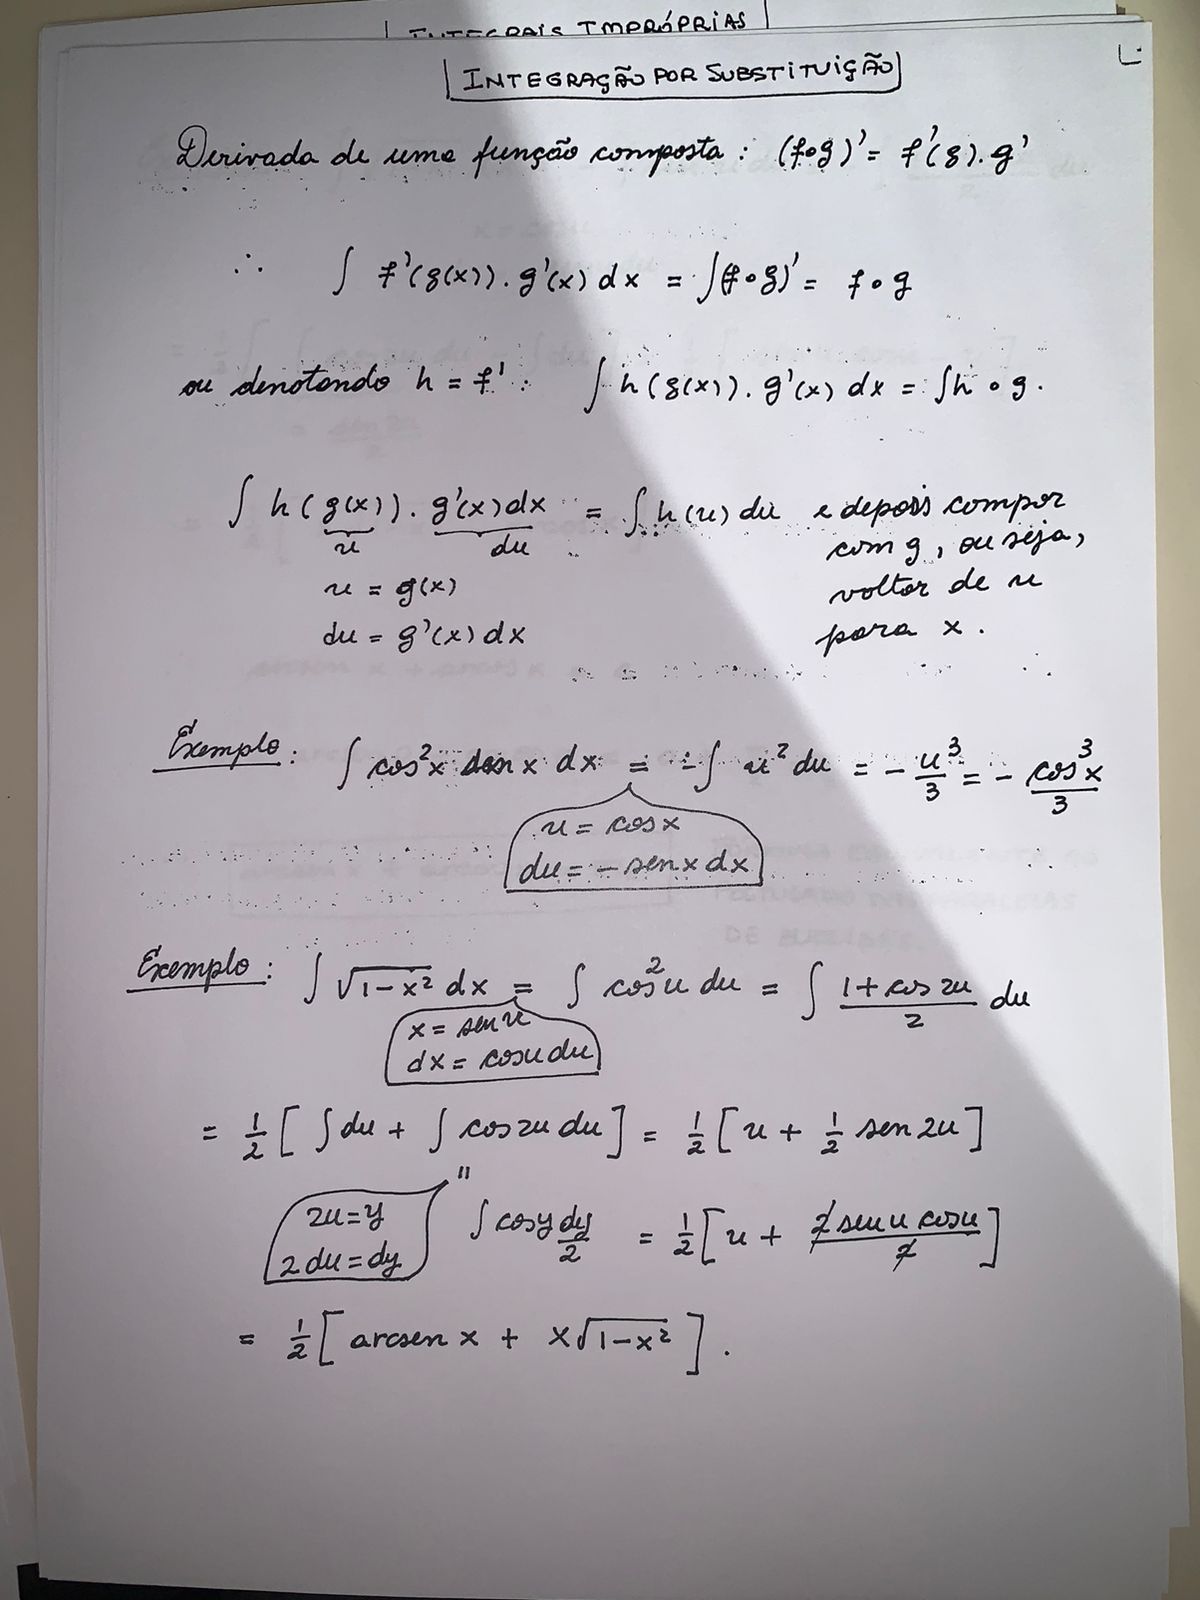 INTEGRAIS IMPRÓPRIAS
INTEGRAÇÃO POR SUBSTITUIÇÃO
Derivada de uma função composta : (f∘g)' = f'(g).g'
∴ ∫ f'(g(x)).g'(x) dx = ∫(f∘g)' = f∘g
ou denotando h = f' : ∫ h(g(x)).g'(x) dx = ∫h ∘ g.
∫ h(g(x)). g'(x) dx = ∫ h(u) du e depois compor
u du com g, ou seja,
u = g(x) voltar de u
du = g'(x) dx para x.
Exemplo : ∫ cos²x sen x dx = -∫ u² du = - u³/3 = - cos³x/3
u = cos x
du = - sen x dx
Exemplo : ∫ √(1-x²) dx = ∫ cos²u du = ∫ (1+cos 2u)/2 du
x = sen u
dx = cos u du
= 1/2 [ ∫ du + ∫ cos 2u du ] = 1/2 [ u + 1/2 sen 2u ]
"
2u = y ∫ cos y dy/2 = 1/2 [ u + 2 sen u cos u / 2 ]
2 du = dy
= 1/2 [ arcsen x + x√(1-x²) ] .